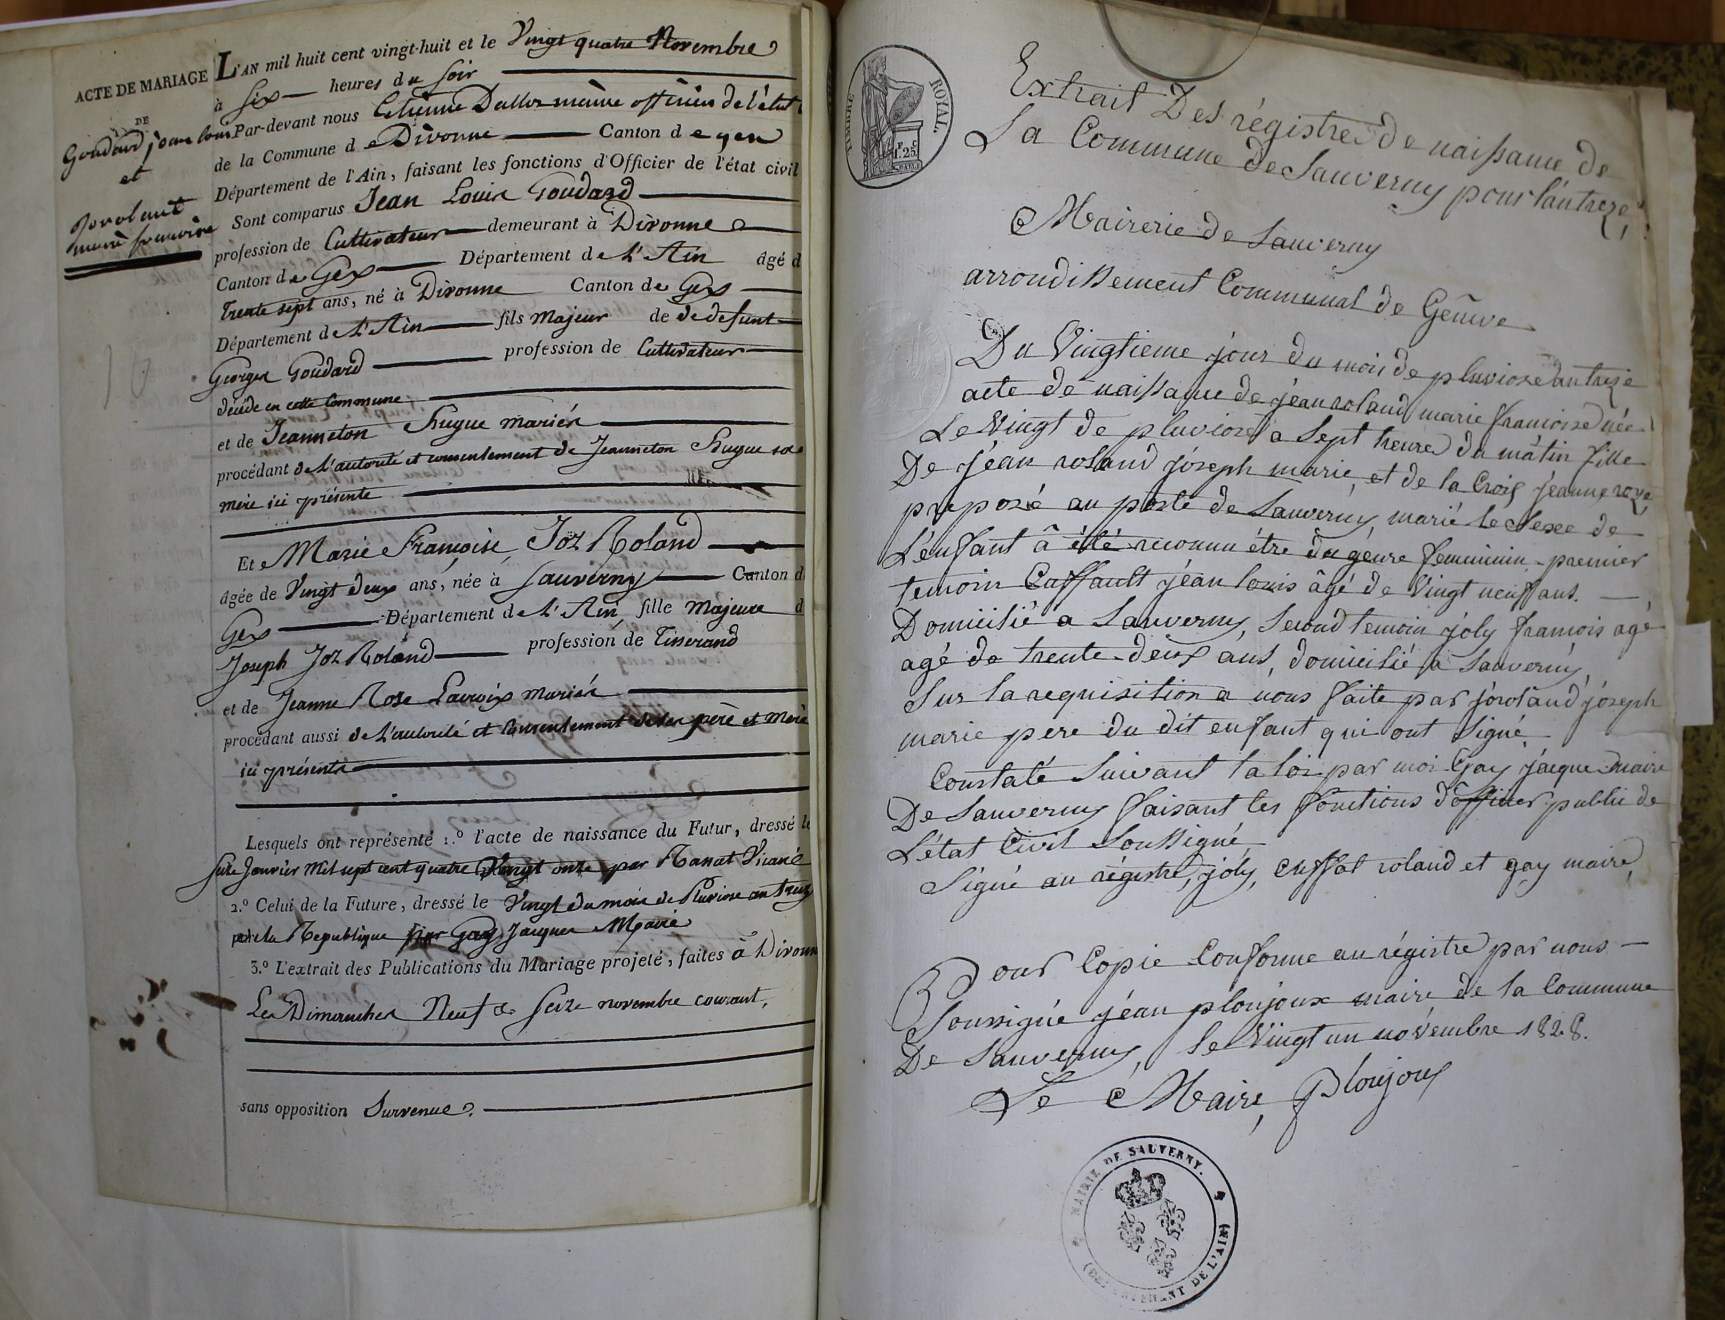 ACTE DE MARIAGE
DE
Goudard jean louis
et
Jorolant
marie francoise
L'AN mil huit cent vingt-huit et le Vingt quatre Novembre
à Six heures du Soir
Par-devant nous Etienne Dalloz maire officier de l'état
de la Commune de Divonne Canton de gex
Département de l'Ain, faisant les fonctions d'Officier de l'état civil
Sont comparus Jean Louis Goudard
profession de Cultivateur demeurant à Divonne
Canton de Gex Département de L'Ain âgé d
Trente sept ans, né à Divonne Canton de Gex
Département de L'Ain fils Majeur de de defunt
Georges Goudard profession de Cultivateur
décédé en cette Commune
et de Jeanneton Hugue mariés
procédant de L'autorité et consentement de Jeanneton Hugue sa
mère ici présente
Et Marie Françoise Joz Roland
âgée de Vingt deux ans, née à Sauverny Canton d
Gex Département de L'Ain, fille Majeure d
Joseph Joz Roland profession de Tisserand
et de Jeanne Rose Lacroix mariés
procédant aussi de L'autorité et Consentement de ses père et Mère
ici présents
Lesquels ont représenté 1.º l'acte de naissance du Futur, dressé le
Seize Janvier Mil sept cent quatre Vingt onze par Vicaire
2.º Celui de la Future, dressé le Vingt du mois de Pluviose an treize
de la Republique par Gay Jacques Maire
3.º L'extrait des Publications du Mariage projeté, faites à Divonne
Les Dimanches Neuf & Seize novembre courant,
sans opposition Survenue.
TIMBRE ROYAL
1.25
Extrait Des régistres de naissance de
La Commune de Sauverny pour l'an treze,
Mairerie de Sauverny
arrondissement Communal de Genève
Du Vingtieme jour du mois de pluviose an treze
acte de naissance de jéanroland marie francoise née
Le Vingt de pluviose a Sept heures du mâtin fille
De jéan roland jóseph marie, et de la Croix jeanne roze
preposé au poste de Sauverny, marié le Sexe de
L'enfant â été reconnu être du genre feminin premier
temoin Cuffault jéan louis âgé de Vingt neuf ans.
Domicilié a Sauverny, Second temoin joly francois agé
agé de trente-deux ans, domicilié a Sauverny,
Sur la requisition a nous faite par jóroland jóseph
marie pere du dit enfant qui ont Signé
Constaté Suivant la loi par moi Gay jácque maire
De Sauverny faisant les fonctions d'officier public de
L'état Civil Soussigné
Signé au régistre, joly, cuffat roland et gay maire,
Pour Copie Conforme au régistre par nous
Soussigné jéan ploujoux maire de la Commune
De Sauverny, le Vingt un novembre 1828.
Le Maire, Ploujoux
MAIRIE DE SAUVERNY.
(DEPARTEMENT DE L'AIN)